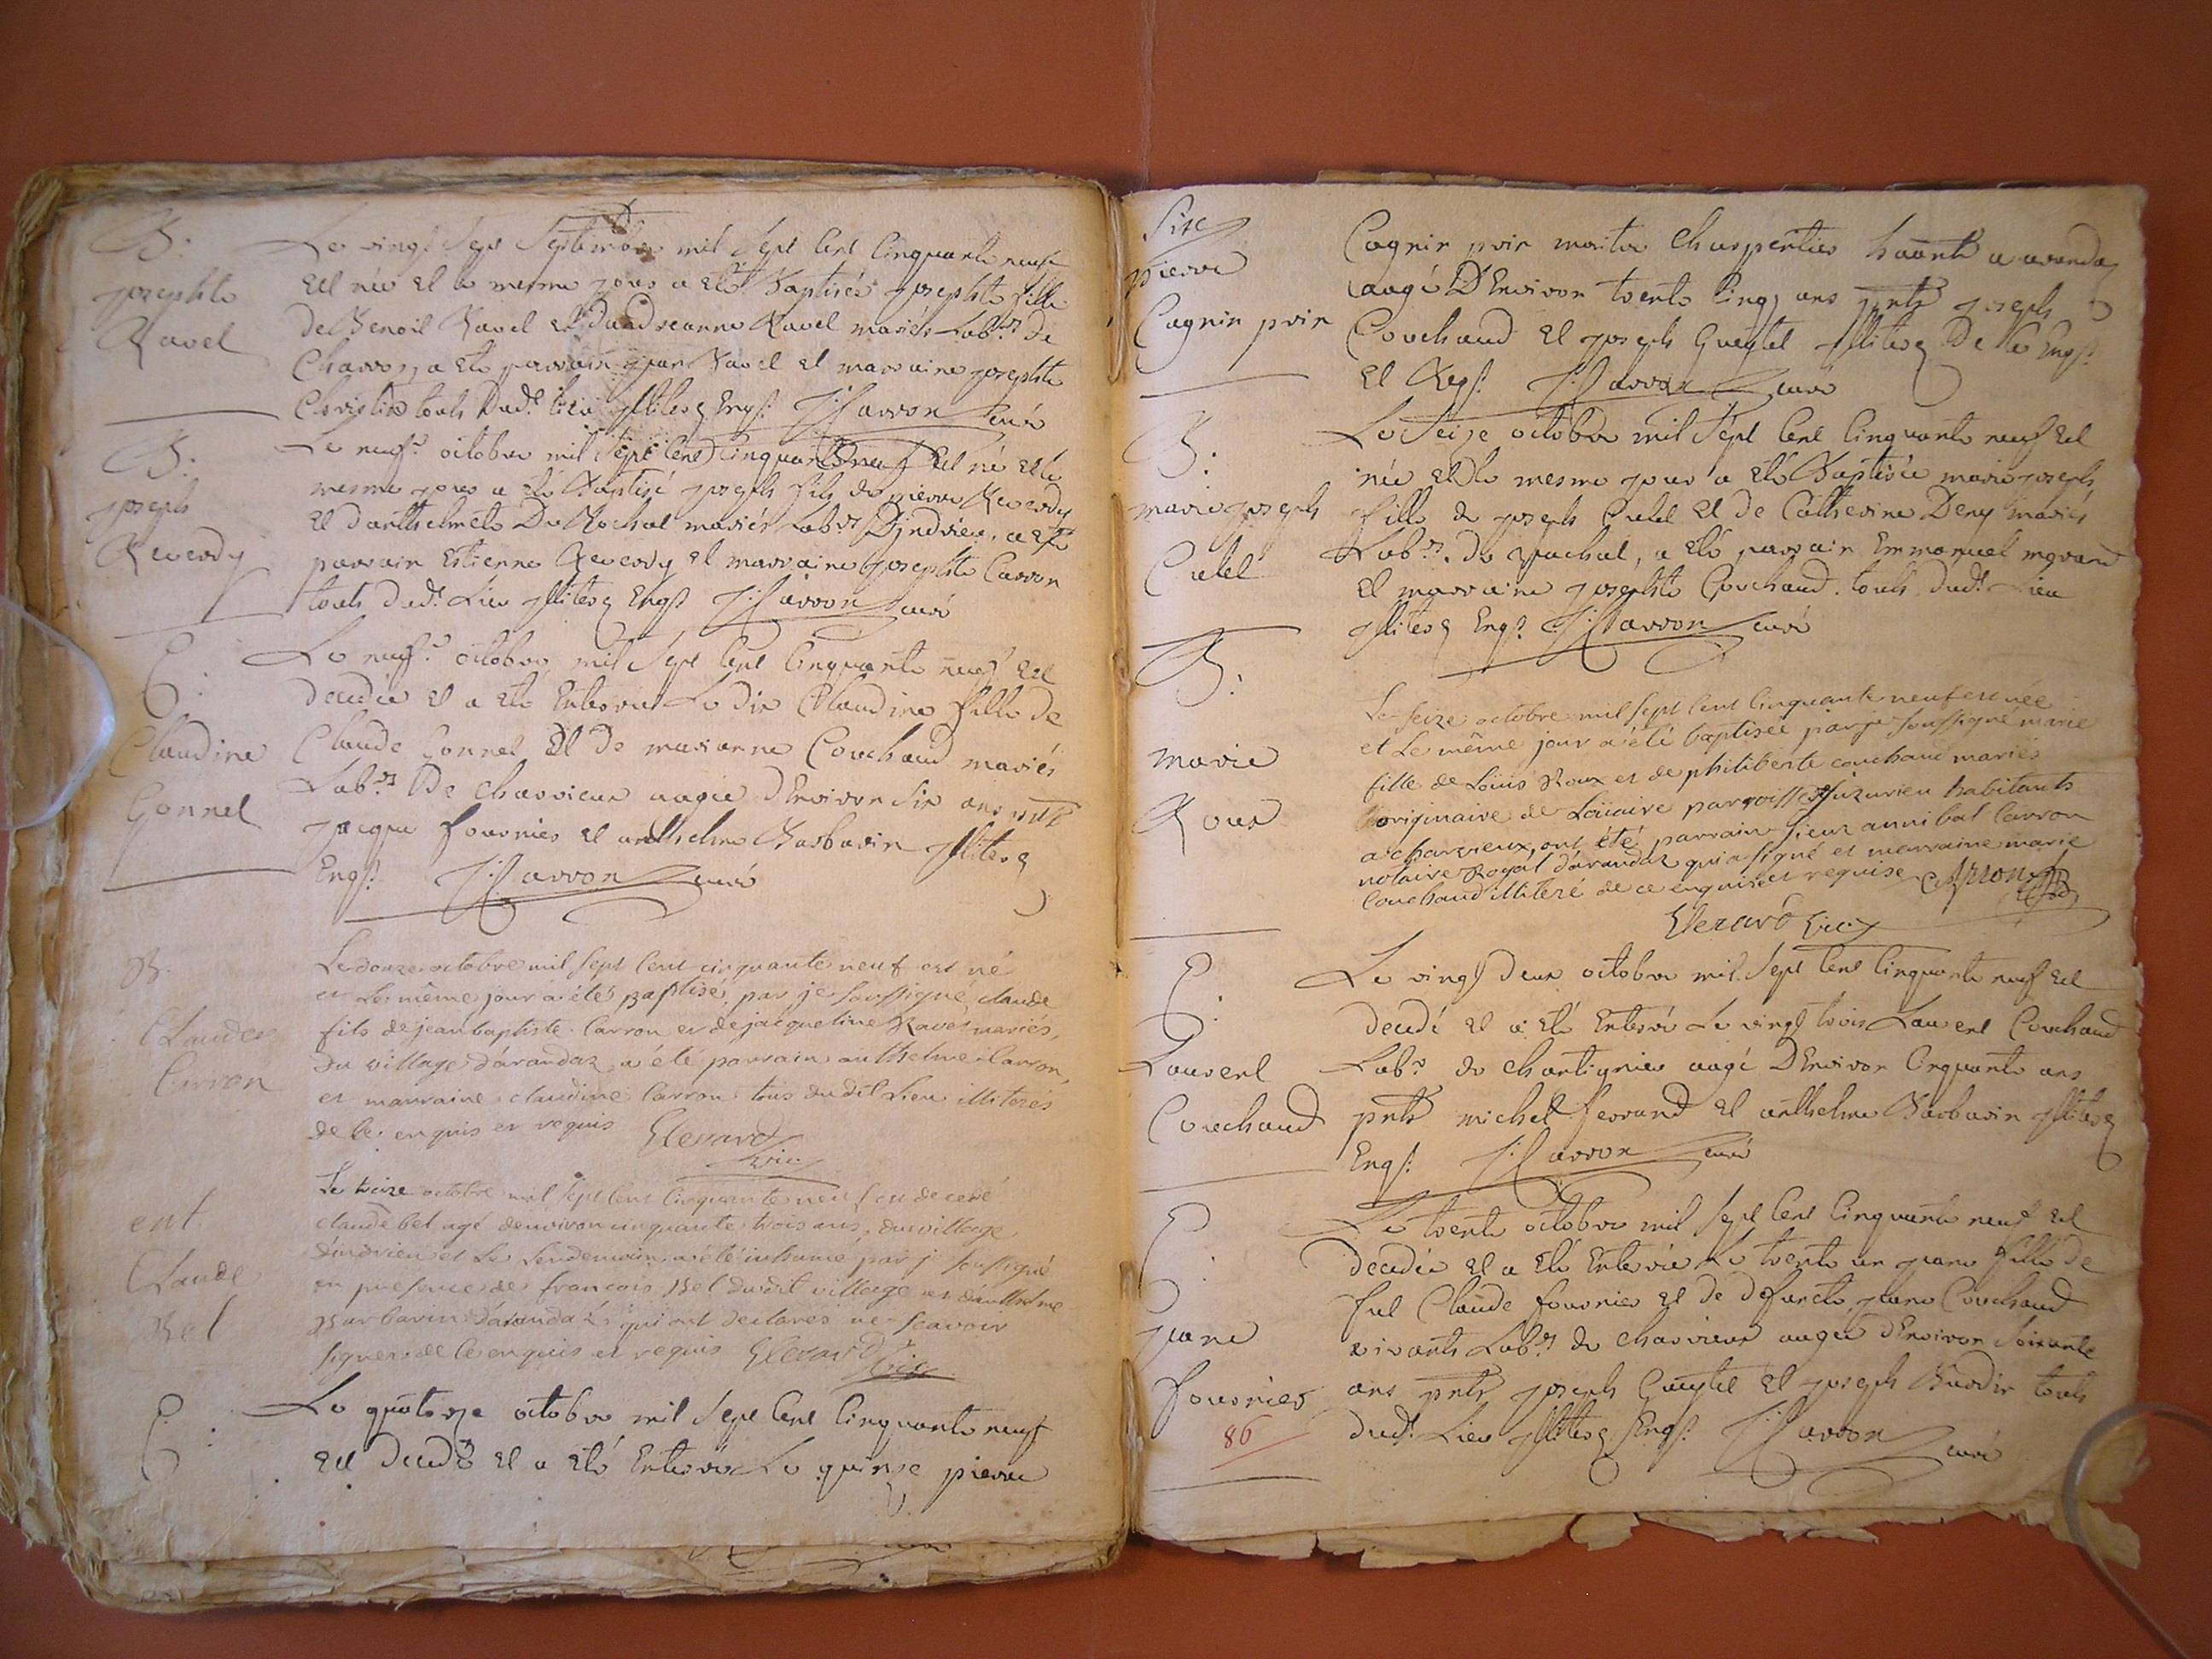 B:
josephte
Ravel
Le vingt sept septembre mil sept cent cinquante neuf
est née et le mesme jour a eté Baptisée josephte fille
de Benoit Ravel et d'andreanne Ravel mariés Lab.rs de
a eté parrain jean Ravel et marraine josephte
Christin touts dud.t lieu illiteres Enq.s J: Carron curé
B:
joseph
Reverdy
Le neuf.e octobre mil sept cent cinquante neuf est né et le
mesme jour a eté Baptisé joseph fils de pierre Reverdy
et d'anthelmete Du Rochat mariés Lab.rs D'jndrieu, a eté
parrain Estienne Reverdy et marraine josephte Carron
touts dud.t Lieu illiteres Enq.s J: Carron curé
E:
Claudine
Gonnet
Le neuf.e octobre mil sept cent cinquante neuf est
decedée et a eté Enterrée Le dix Claudine fille de
Claude Gonnet et de marianne Couchaud mariés
Lab.rs De Charvieux aagée d'Environ six ans pnts
jacque fournier et anthelme Barbarin illiteres
Enq.s J: Carron curé
B.
Claude
Carron
Le douze octobre mil sept cent cinquante neuf est né
et Le même jour a été Baptisé par je soussigné claude
fils de jean baptiste Carron et de jacqueline Ravet mariés,
du village d'arandaz a été parrain anthelme Carron,
et marraine claudine Carron tous dudit Lieu illiterés
de ce enquis et requis Elerard
vic.
ent.
Claude
Bel
Le treize octobre mil sept cent cinquante neuf est decedé
claude bel agé denviron cinquante trois ans, du village
d'indrieu et Le Lendemain a été inhumé par je soussigné
en presence de francois Bel dudit village et d'anthelme
Barbarin d'arandaz qui ont declarés ne scavoir
signer de ce enquis et requis Elerard vic.
E:
Le quatorze octobre mil sept cent cinquante neuf
est decedé et a eté Enterré Le quinze pierre
pierre
Cagnin poin
Cagnin poin maitre Charpentier haant a arandaz
aagé D'Environ trente cinq ans pnts joseph
Couchaud et joseph Gueytet illiteres De ce Enq.s
et Req.s J: Carron curé
B:
marie joseph
Le seize octobre mil sept cent cinquante neuf est
née et le mesme jour a eté Baptisée marie joseph
fille de joseph et de Catherine Deny mariés
Lab.rs. du a eté parrain Emmanuel
et marraine josephte Couchaud. touts dud.t Lieu
illiteres Enq.s J: Carron curé
B:
marie
Roux
Le seize octobre mil sept cent cinquante neuf est née
et Le même jour a été baptisée par je soussigné marie
fille de Louis Roux et de philiberte couchaud mariés
originaire de parroisse jujurieu habitants
a charvieux, ont été parrain sieur annibal Carron
notaire Royal d'arandaz qui a signé et marraine marie
Couchaud illiteré de ce enquise et requise Carron
Elerard vic.
E:
Laurent
Couchaud
Le vingt deux octobre mil sept cent cinquante neuf est
decedé et a eté Enterré Le vingt trois Laurent Couchaud
Lab.r de Chantignier aagé D'Environ Cinquante ans
pnts michel ferrand et anthelme Barbarin illiteres
Enq.s J: Carron curé
E:
jeane
fournier
86
Le trente octobre mil sept cent cinquante neuf est
decedée et a eté Enterrée Le trente un jeane fille de
fut Claude fournier et de defuncte jeane Couchaud
vivants Lab.rs de Charvieux aagée d'Environ soixante
ans pnts joseph Gueytet et joseph Burdin touts
dud.t Lieu illiteres Enq.s J: Carron curé